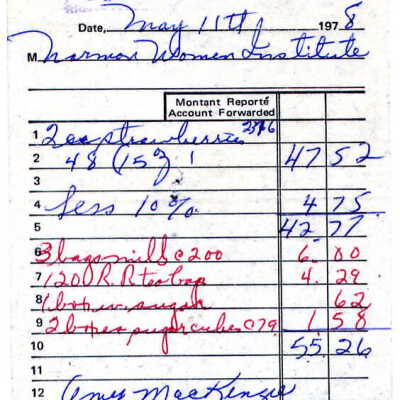 Date, May 11th 1978
M Women Institute
Montant Reporté
Account Forwarded
1 2 strawberries 2376
2 48 (15 oz) 47 52
3
4 Less 10% 4 75
5 42 77
6 3 bags milk @ 200 6. 00
7 120 R.R tea bag 4. 29
8 1 box w. sugar 62
9 2 boxes sugar cubes @ 79 1 58
10 55. 26
11
12 MacKenzie